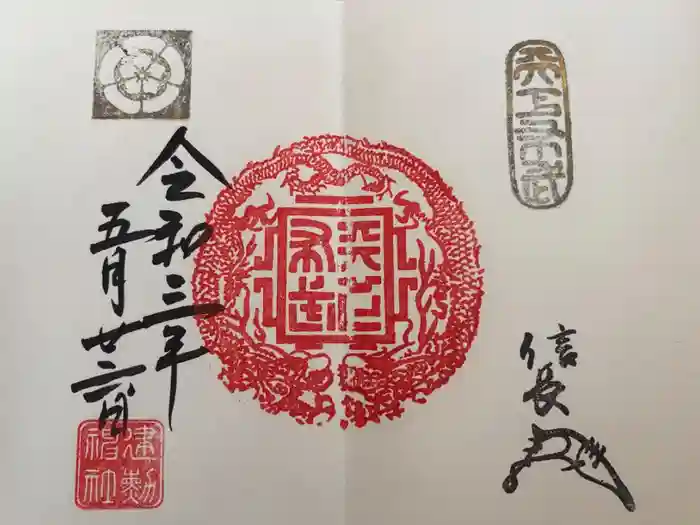 天下布武
信長
天下布武
令和三年
五月廿二日
建勲神社